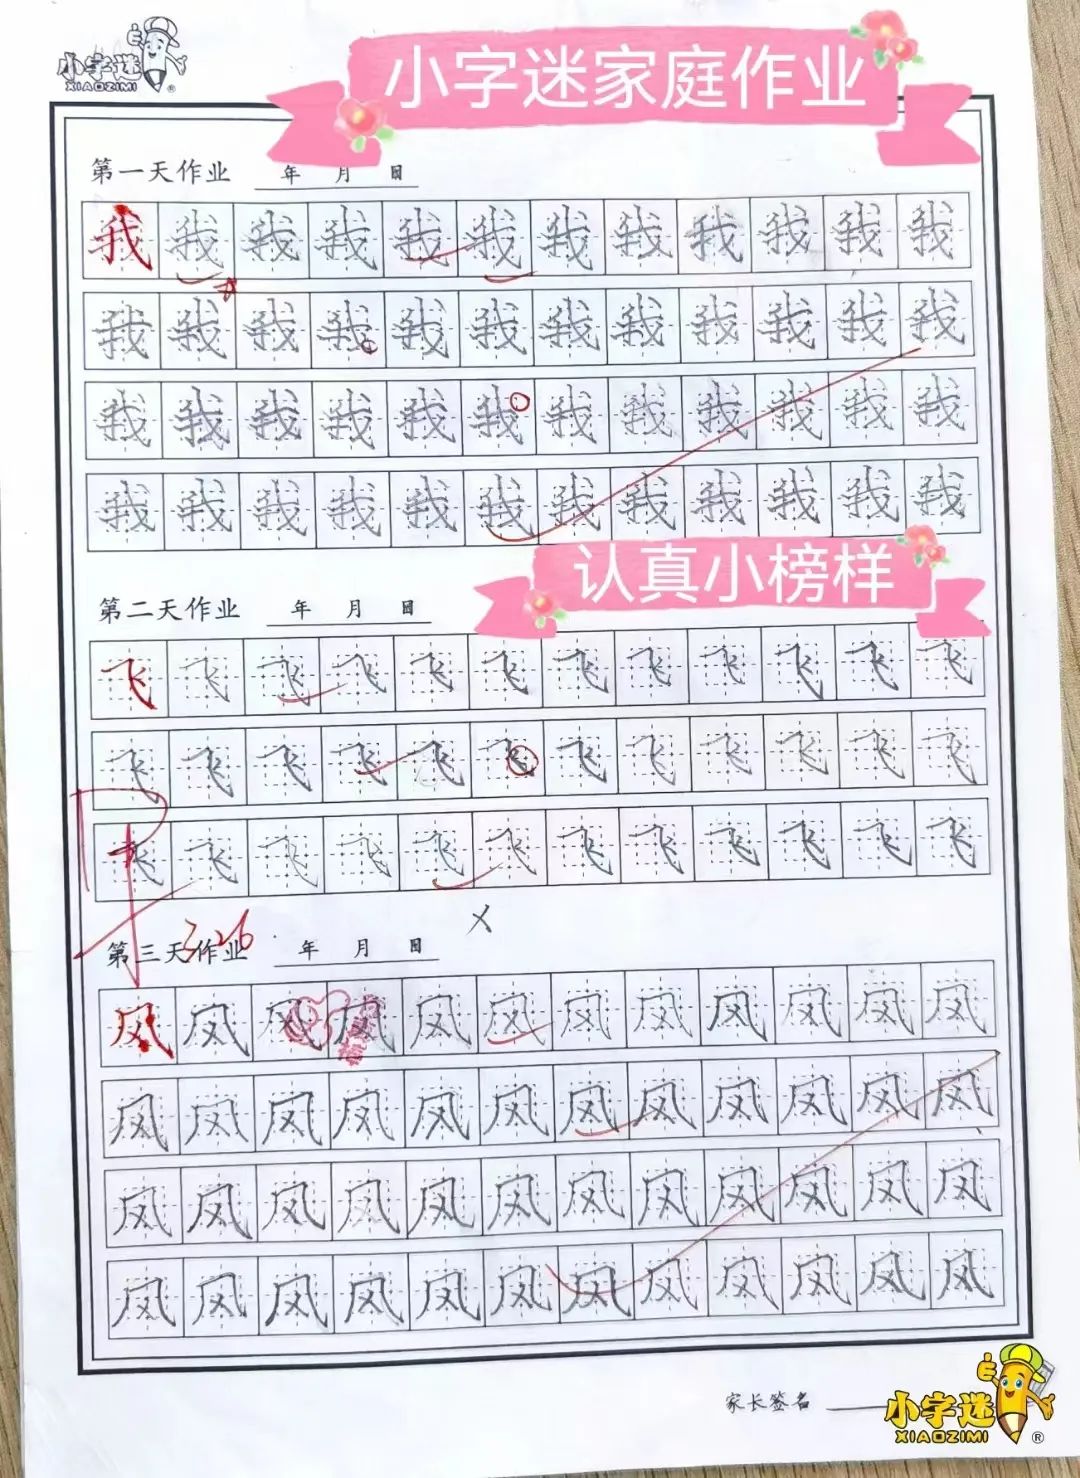 小字迷
XIAOZIMI ®
小字迷家庭作业
第一天作业 年 月 日
我 我 我 我 我 我 我 我 我 我 我 我
我 我 我 我 我 我 我 我 我 我 我 我
我 我 我 我 我 我 我 我 我 我 我 我
我 我 我 我 我 我 我 我 我 我 我 我
认真小榜样
第二天作业 年 月 日
飞 飞 飞 飞 飞 飞 飞 飞 飞 飞 飞 飞
飞 飞 飞 飞 飞 飞 飞 飞 飞 飞 飞 飞
飞 飞 飞 飞 飞 飞 飞 飞 飞 飞 飞 飞
3.26
第三天作业 年 月 日
风 风 风 风 风 风 风 风 风 风 风 风
风 风 风 风 风 风 风 风 风 风 风 风
风 风 风 风 风 风 风 风 风 风 风 风
风 风 风 风 风 风 风 风 风 风 风 风
家长签名
小字迷
XIAOZIMI ®